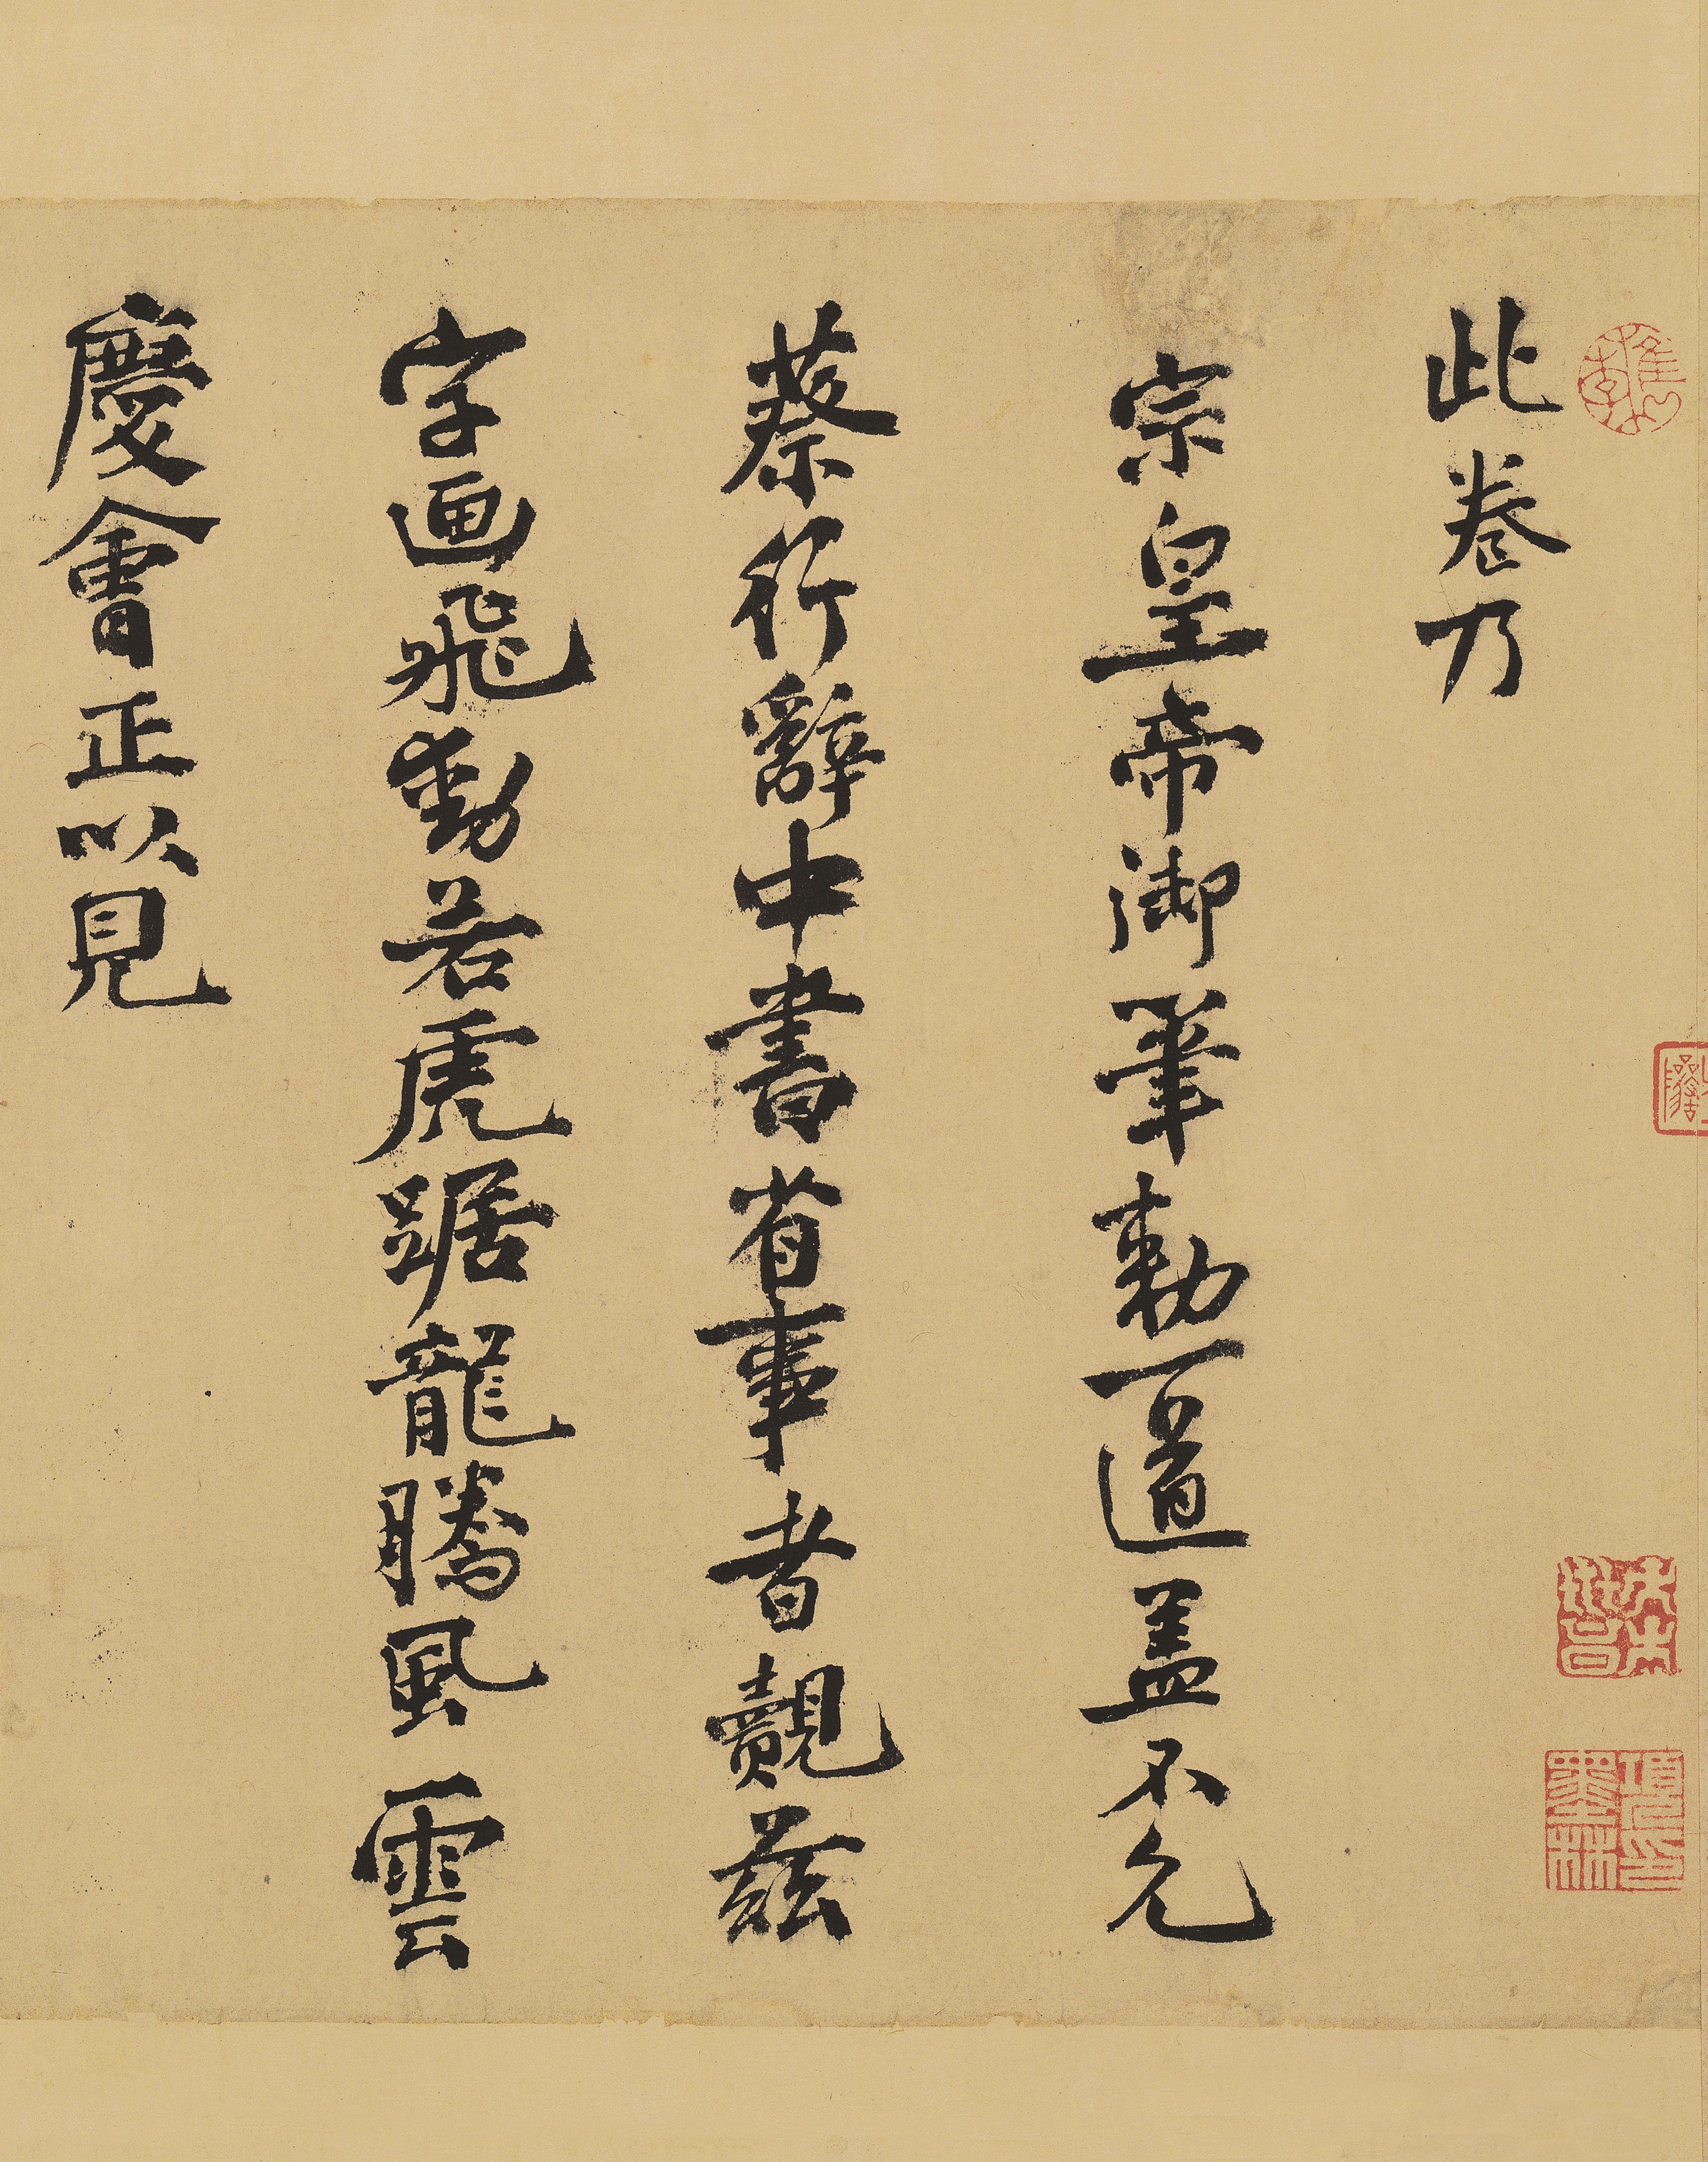 此卷乃
宗皇帝御筆勅一道蓋不允
蔡行辭中書省事者覿茲
字画飛動若虎踞龍騰風雲
慶會正以見
項墨林印